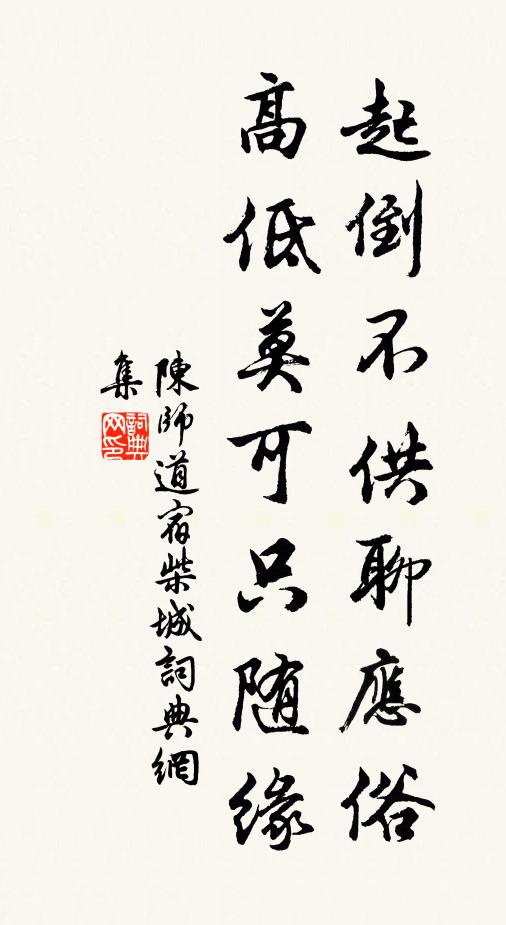 起倒不供聊應俗
高低莫可只随緣
陳師道宿柴城詞典網
集
詞典
网印